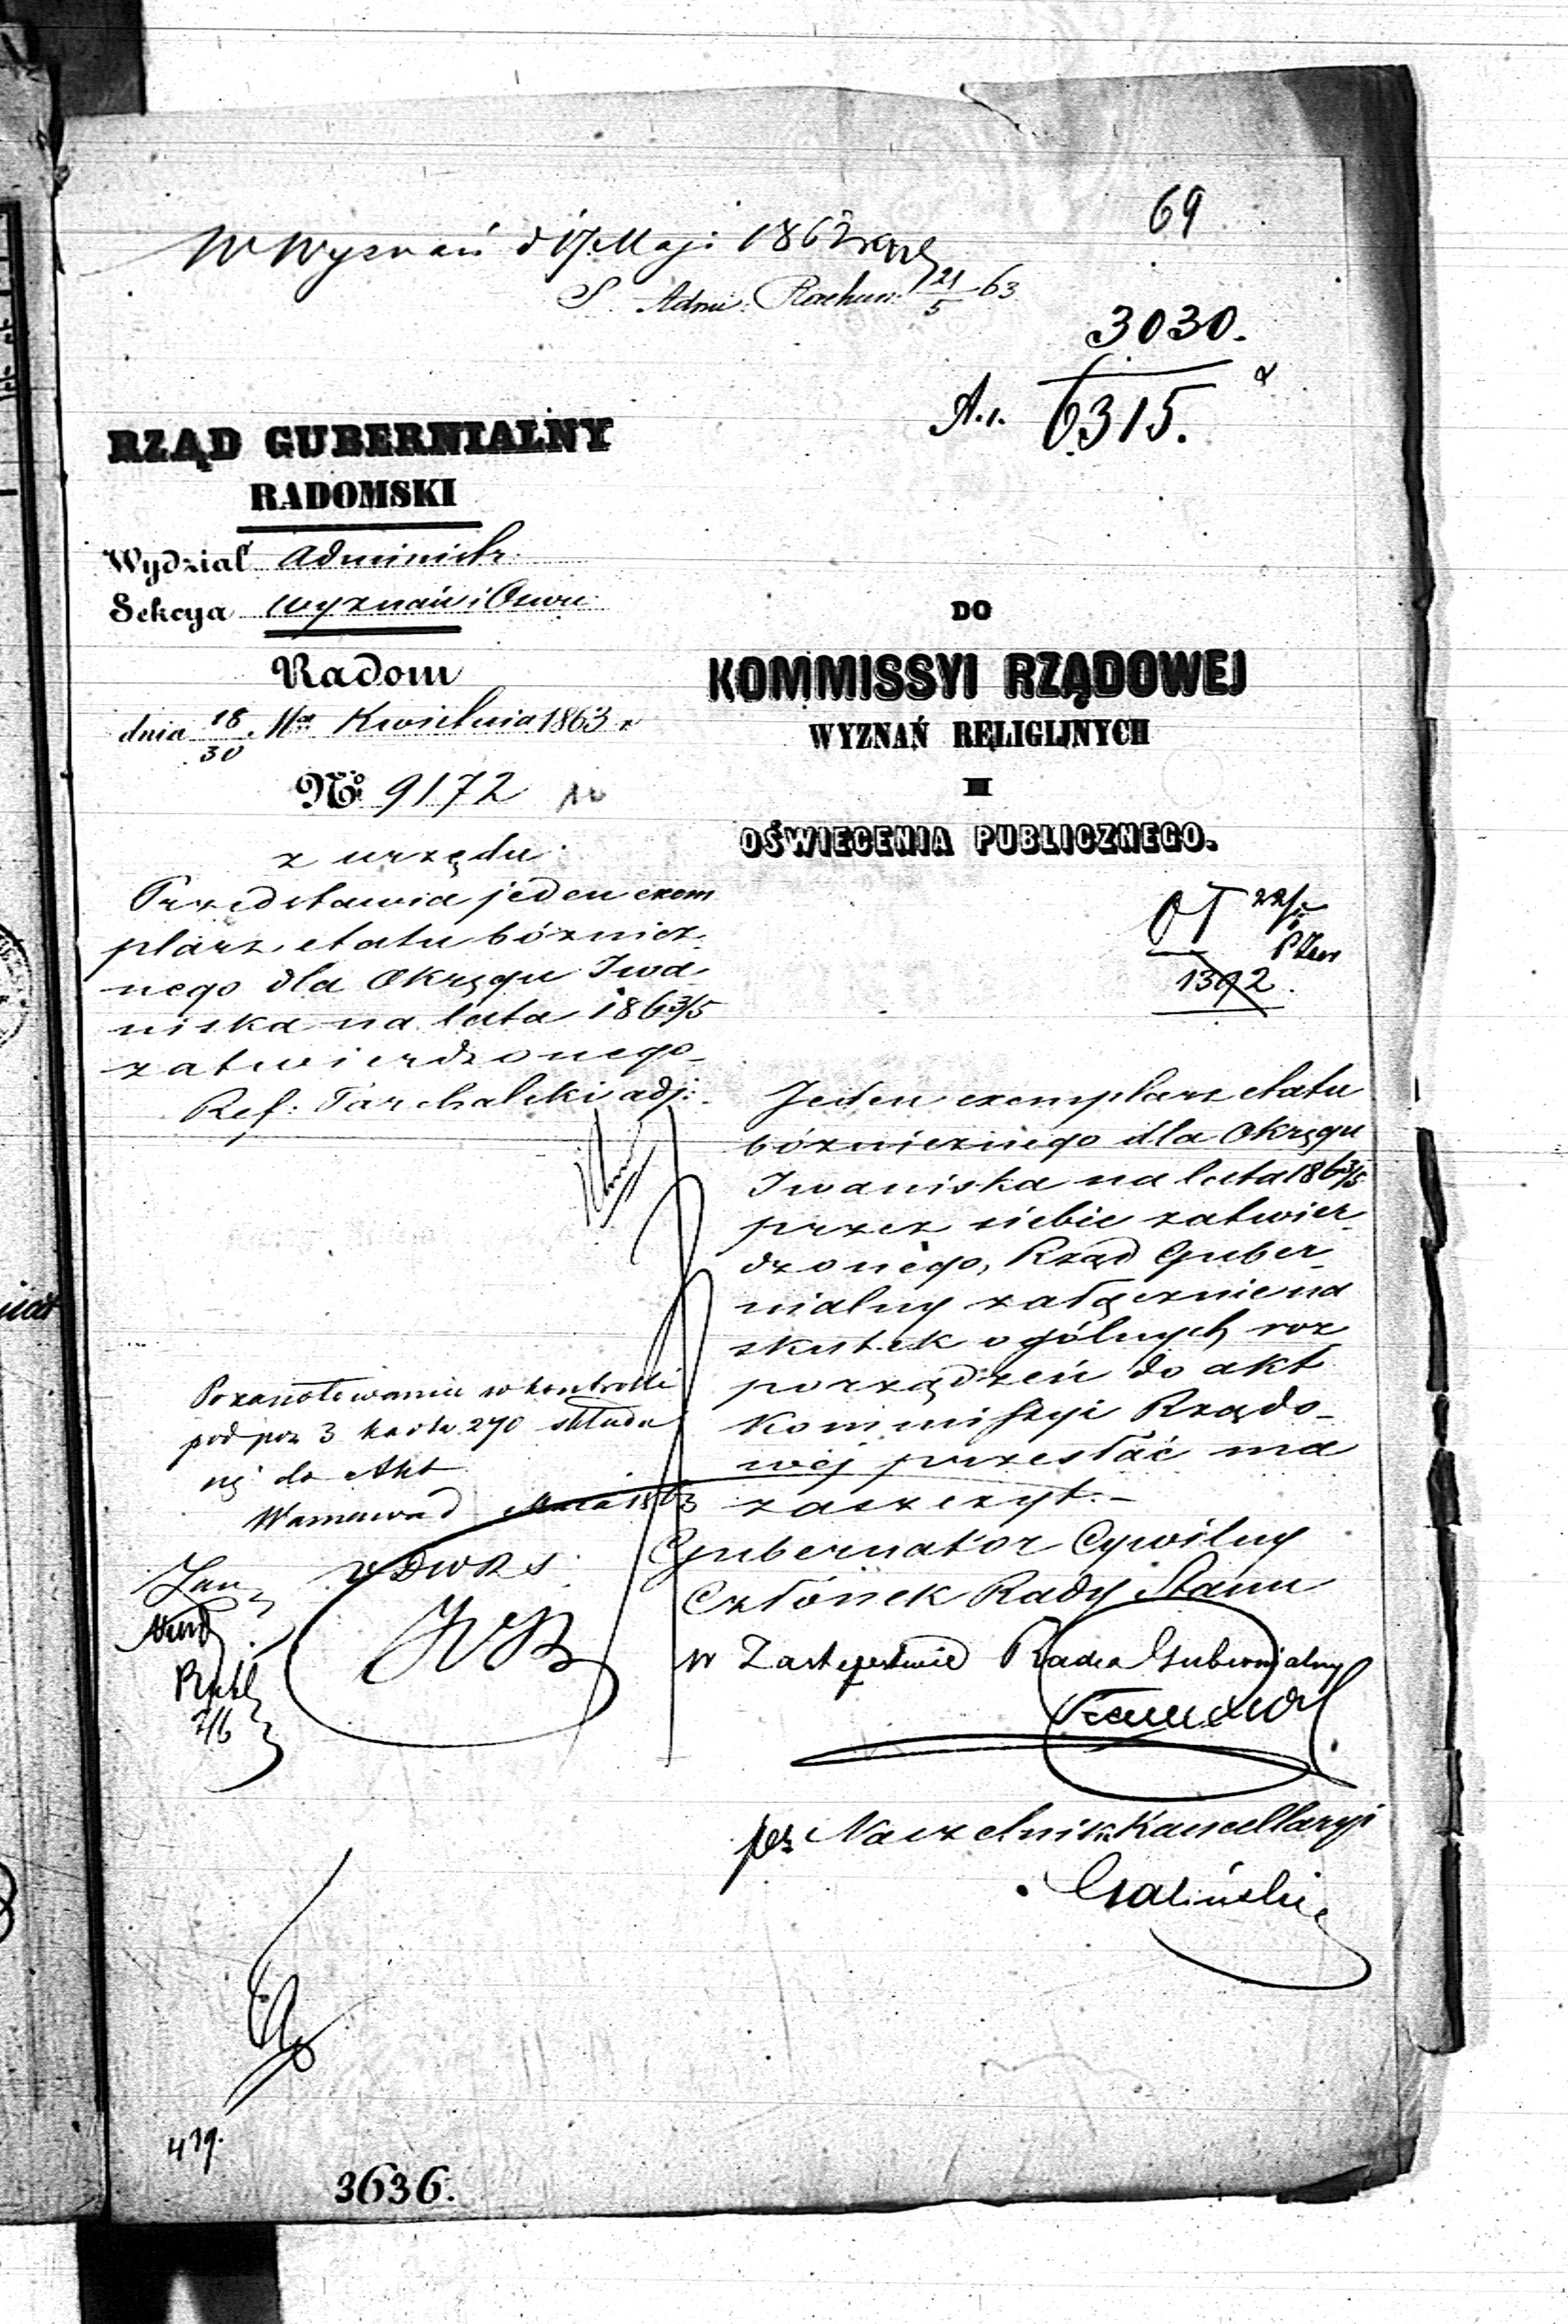 69
W Wyznań d 17 Maja 1863
S. Admi: Rachun: 21/5 63
3030.
A.1. 6315.
RZĄD GUBERNIALNY
RADOMSKI
Wydział Administr:
Sekcya Wyznań i Oswie:
Radom
dnia 18/30 Ma Kwietnia 1863 r
No 9172
z urzędu
Przedstawia jeden exem
plarz etatu bóżnicz_
nego dla Okręgu Iwa_
niska na lata 1863/5
zatwierdzonego_
Ref: Tarchalski adj:
DO
KOMMISSYI RZĄDOWEJ
WYZNAŃ RELIGIJNYCH
I
OŚWIECENIA PUBLICZNEGO.
OT 22/5
1392.
Jeden exemplarz etatu
bóżnicznego dla Okręgu
Iwaniska na lata 1863/5
przez siebie zatwier_
dzonego, Rząd Guber_
nialny załącznie na
skutek ogólnych roz_
porządzeń do akt
Kommissyi Rządo_
wej przesłać ma
zaszczyt.—
Gubernator Cywilny
Członek Rady Stanu
w Zastępstwie Radca Gubernialny
Naczelnik Kancellaryi
Po zanotowaniu w kontrolli
pod poz 3 karta 270 składa
się do Akt
Warszawa d Maja 1863
439.
3636.